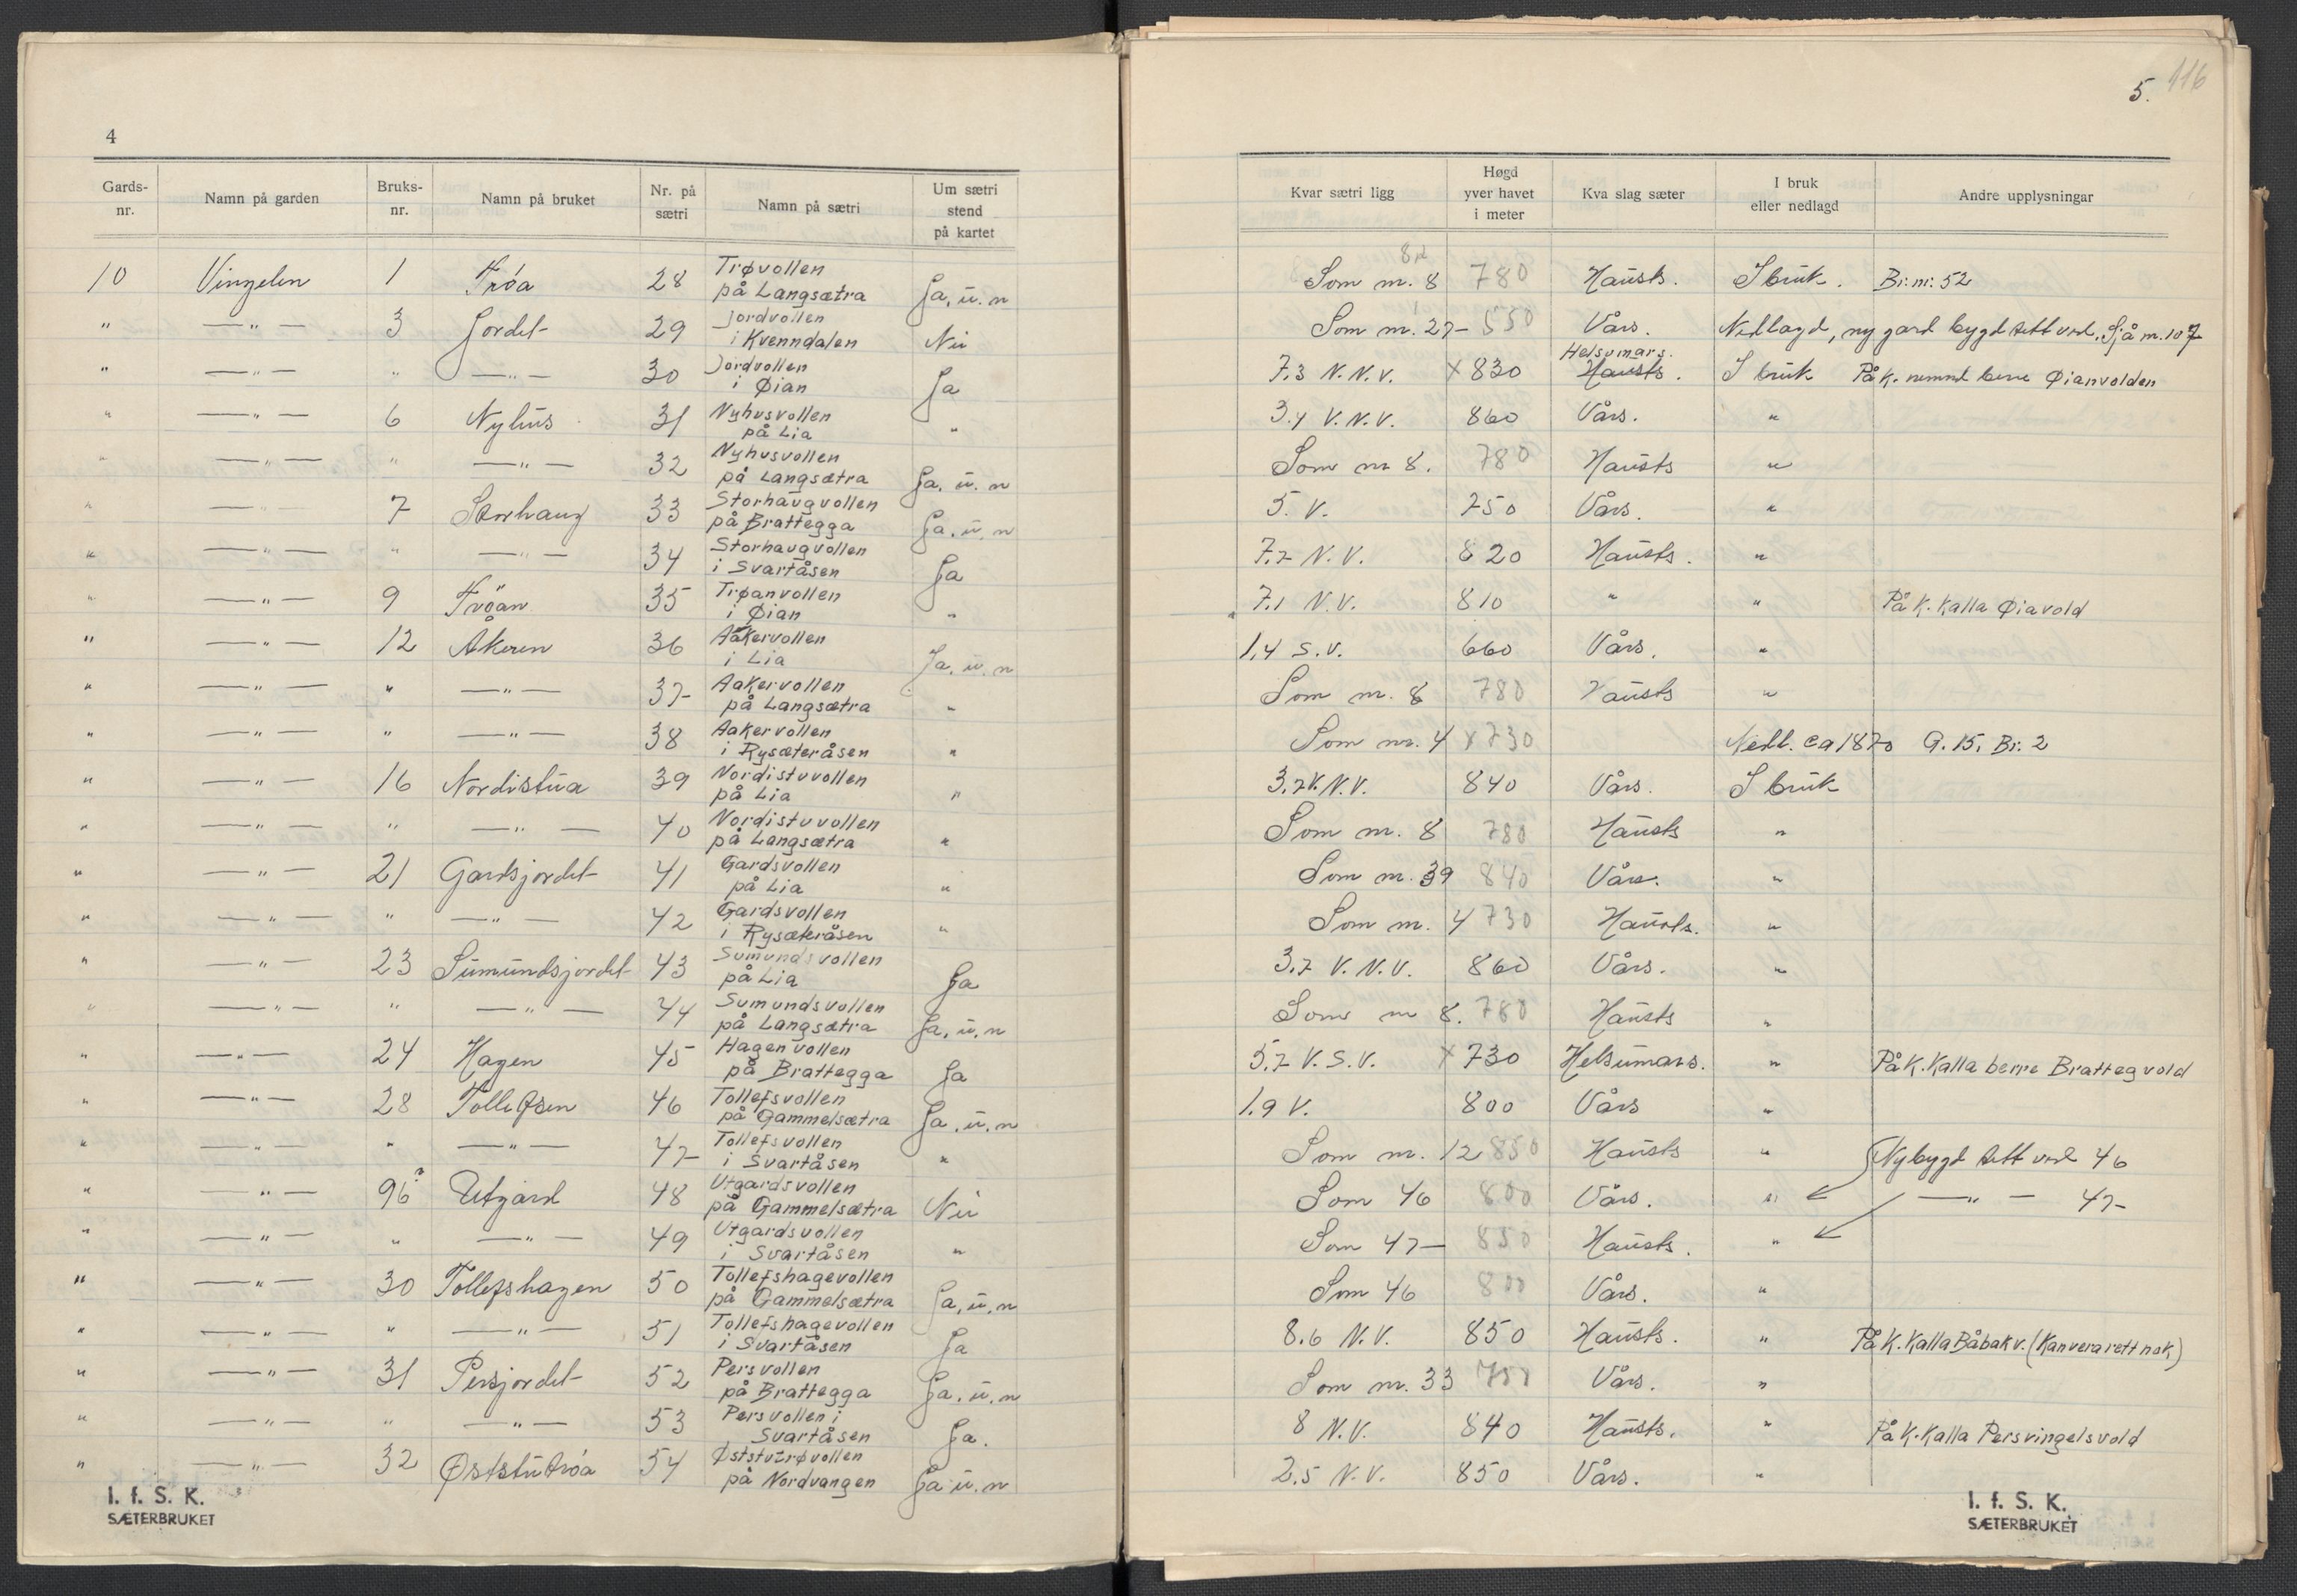 4
Gards-nr. Namn på garden Bruks-nr. Namn på bruket Nr. på sætri Namn på sætri Um sætri stend på kartet
10 Vingelen 1 Trøa 28 Trøvollen på Langsætra Ja, u. n
" —"— 3 Jordet 29 Jordvollen i Kvenndalen Nei
" —"— " —"— 30 Jordvollen i Øian Ja
" —"— 6 Nyhus 31 Nyhusvollen på Lia "
" —"— " —"— 32 Nyhusvollen på Langsætra Ja. u. n
" —"— 7 Storhaug 33 Storhaugvollen på Brattegga Ja. u. n
" —"— " —"— 34 Storhaugvollen i Svartåsen Ja
" —"— 9 Trøan 35 Trøanvollen i Øian "
" —"— 12 Åkeren 36 Aakervollen i Lia Ja. u. n
" —"— " —"— 37 Aakervollen på Langsætra "
" —"— " —"— 38 Aakervollen i Rysæteråsen "
" —"— 16 Nordistua 39 Nordistuvollen på Lia "
" —"— " —"— 40 Nordistuvollen på Langsætra "
" —"— 21 Gardsjordet 41 Gardsvollen på Lia "
" —"— " —"— 42 Gardsvollen i Rysæteråsen "
" —"— 23 Sumundsjordet 43 Sumundsvollen på Lia Ja
" —"— " —"— 44 Sumundsvollen på Langsætra Ja, u. n
" —"— 24 Hagen 45 Hagenvollen på Brattegga Ja
" —"— 28 Tollefsen 46 Tollefsvollen på Gammelsætra Ja. u. n
" —"— " —"— 47 Tollefsvollen i Svartåsen "
" —"— 96? Utgard 48 Utgardsvollen på Gammelsætra Nei
" —"— " —"— 49 Utgardsvollen i Svartåsen "
" —"— 30 Tollefshagen 50 Tollefshagevollen på Gammelsætra Ja, u. n
" —"— " —"— 51 Tollefshagevollen i Svartåsen Ja
" —"— 31 Persjordet 52 Persvollen på Brattegga Ja. u. n
" —"— " —"— 53 Persvollen i Svartåsen Ja.
" —"— 32 Øststutrøa 54 Øststutrøvollen på Nordvangen Ja u. n
I. f. S. K.
SÆTERBRUKET
5. 116
Kvar sætri ligg Høgd yver havet i meter Kva slag sæter I bruk eller nedlagd Andre upplysningar
Som nr. 8 780 Hausts. I bruk. Br.nr. 52
Som nr. 27 550 Vårs. Nedlagd, ny gard bygd tett ved. Sjå nr. 107
7.3 N.N.V. X 830 Helsumars. Hausts. I bruk På K. nemnd berre Øianvolden
3.4 V.N.V. 860 Vårs. "
Som nr 8. 780 Hausts "
5. V. 750 Vårs. "
7.2 N.V. 820 Hausts. "
7.1 N.V. 810 " " På K. Kalla Øiavold
1.4 S.V. 660 Vårs. "
Som nr. 8 780 Hausts "
Som nr. 4 X 730 Nedl. ca 1870 G. 15. Br. 2
3.7 V.N.V. 840 Vårs. I bruk
Som nr. 8 780 Hausts "
Som nr. 39 840 Vårs. "
Som nr. 4 730 Hausts. "
3.7 V.N.V. 860 Vårs. "
Som nr 8. 780 Hausts "
5.7 V.S.V. X 730 Helsumars. " På K. Kalla berre Brattegvold
1.9 V. 800 Vårs "
Som nr. 12 850 Hausts " Nybygd tett ved 46
Som 46 800 Vårs. " —"— 47
Som 47 850 Hausts. "
Som 46 800 Vårs. "
8.6 N.V. 850 Hausts. " På K. Kalla Båbakv. (Kan vera rett nok)
Som nr. 33 750 Vårs. "
8 N.V. 840 Hausts. " På K. Kalla Persvingelsvold
2.5 N.V. 850 Vårs. "
I. f. S. K.
SÆTERBRUKET